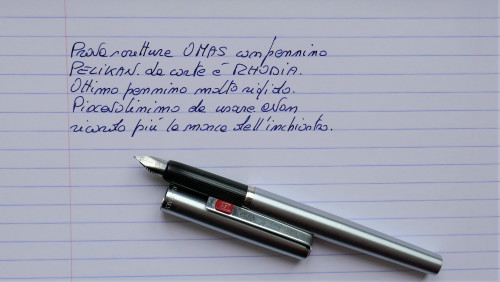 Prova scrittura OMAS con pennino
PELIKAN. la carta é RHODIA.
Ottimo pennino molto rigido.
Piacevolissimo da usare. Non
ricordo più la marca dell'inchiostro.